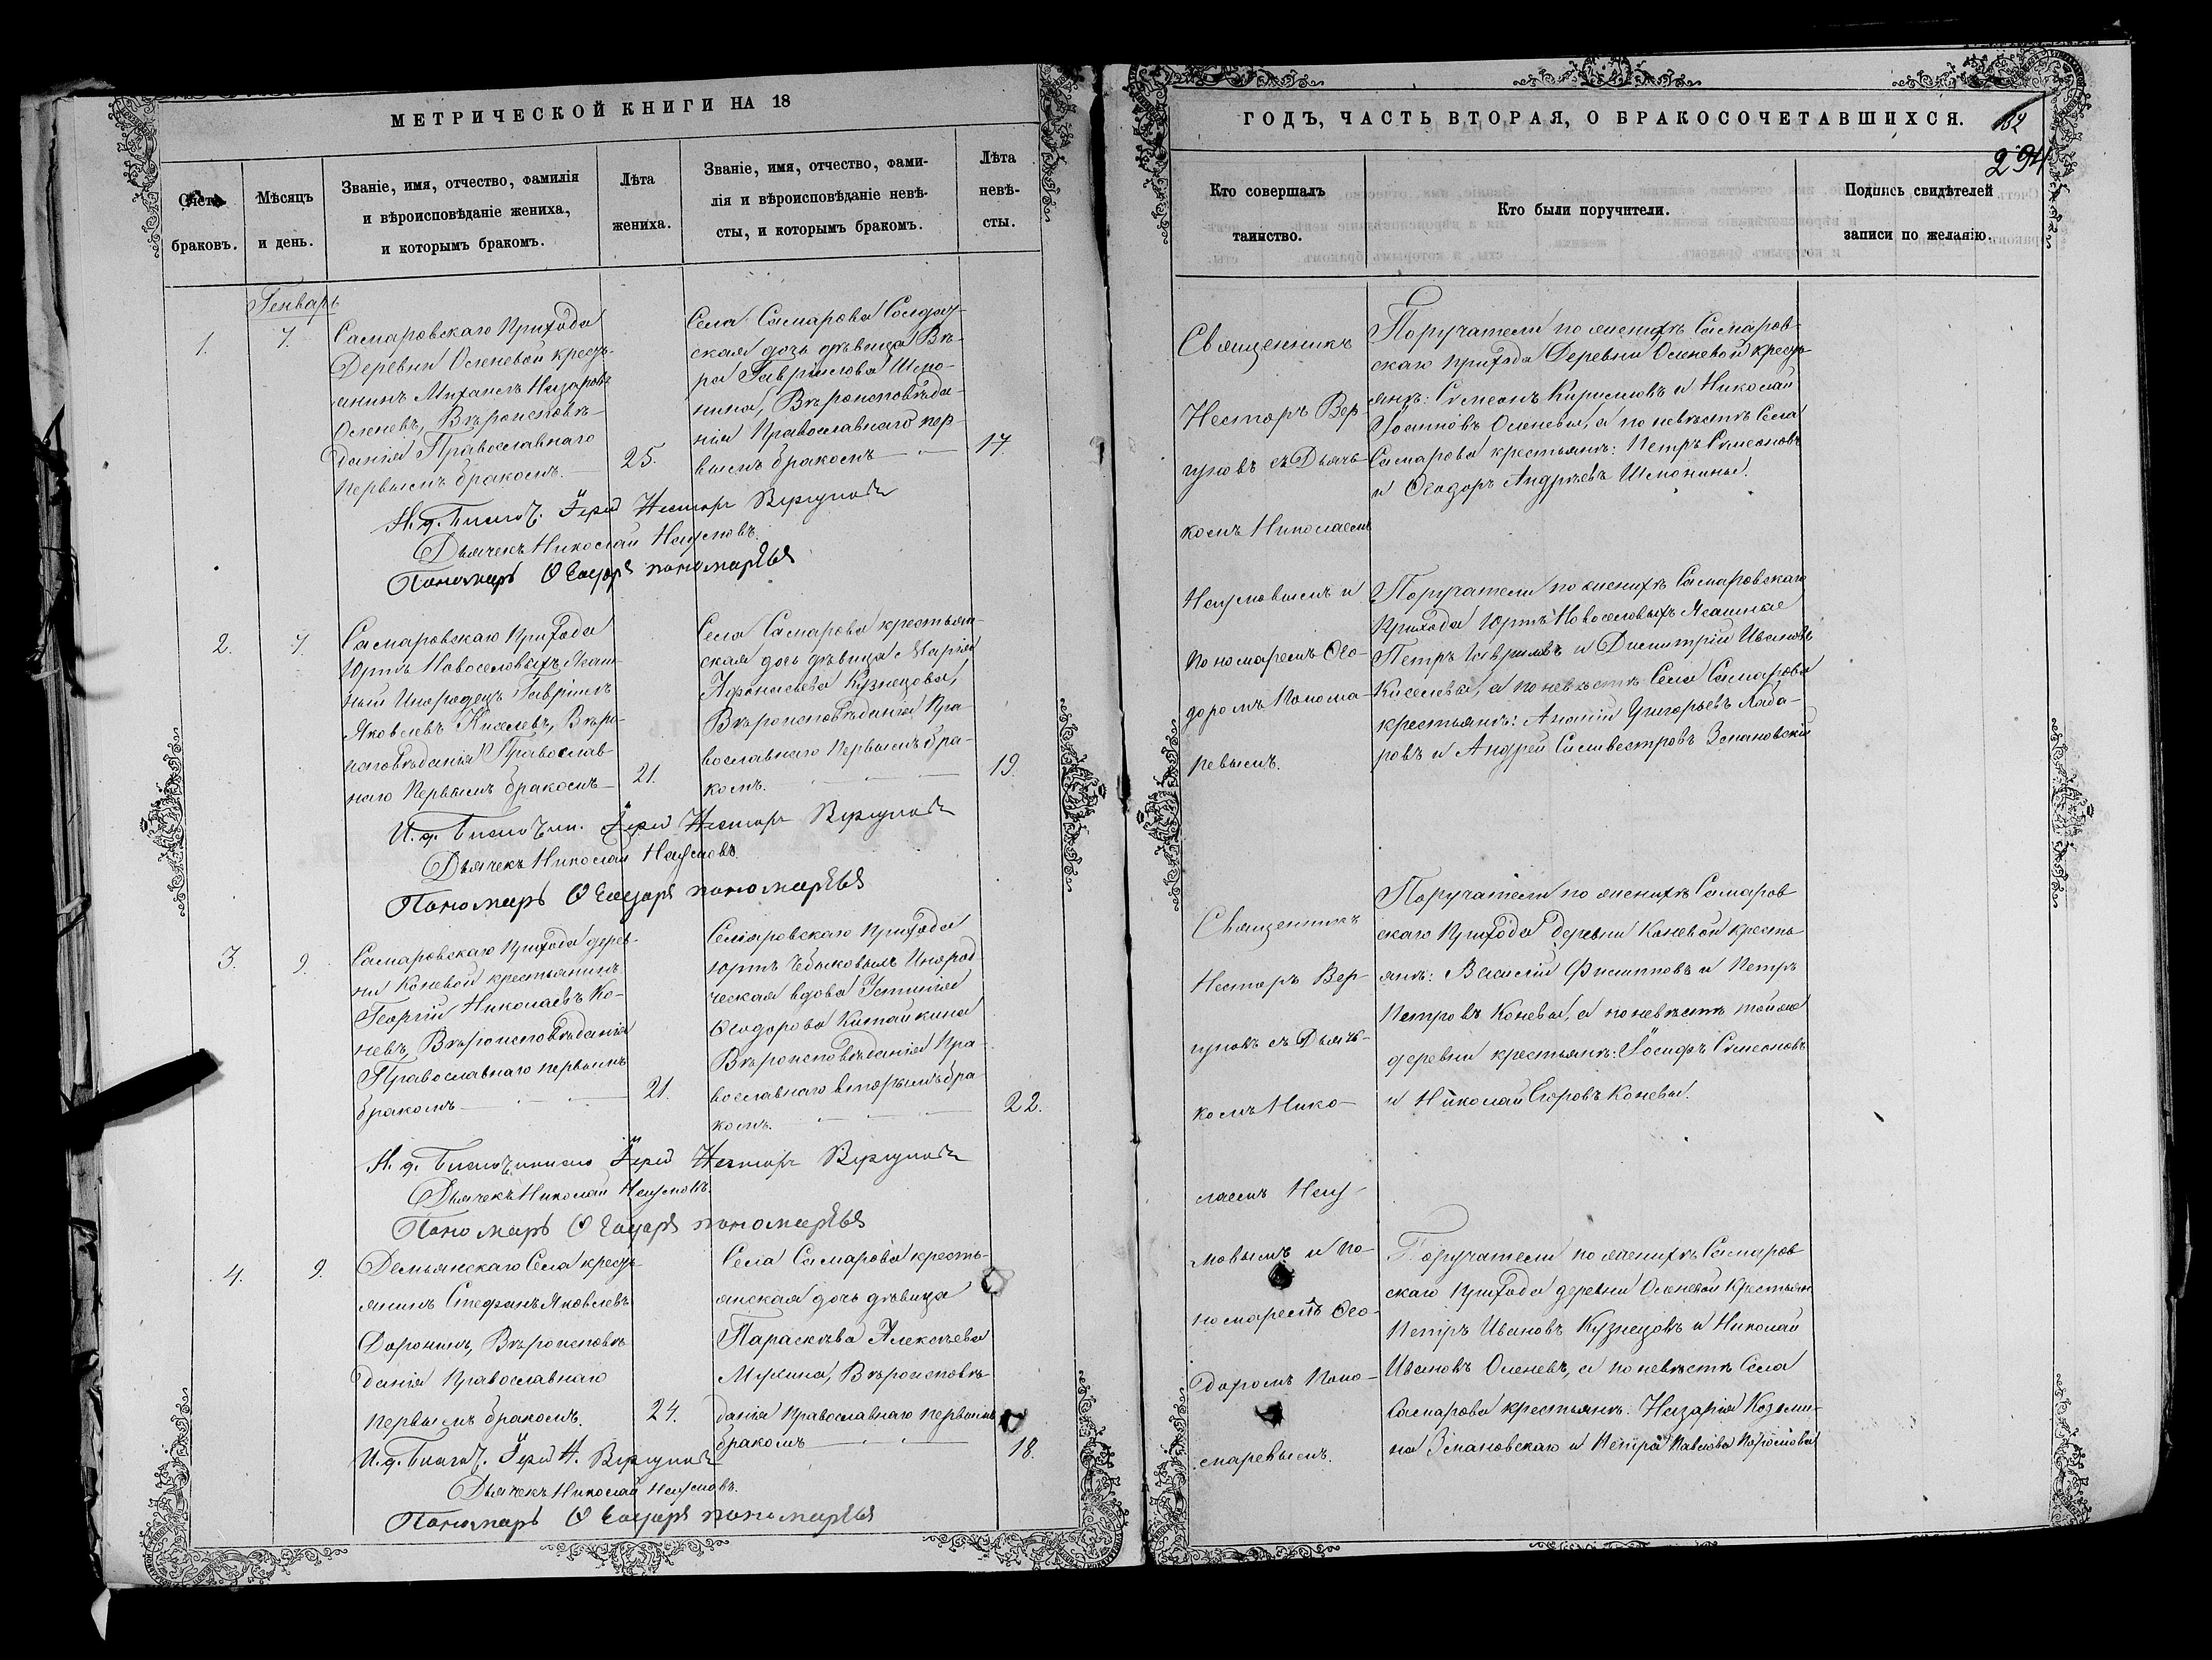 МЕТРИЧЕСКОЙ КНИГИ НА 18
Счетъ
браковъ.
Мѣсяцъ
и день.
Званіе, имя, отчество, фамилія
и вѣроисповѣданіе жениха,
и которымъ бракомъ.
Лѣта
жениха.
Званіе, имя, отчество, фами-
лія и вѣроисповѣданіе невѣ-
сты, и которымъ бракомъ.
Лѣта
невѣ-
сты.
Генварь
1.
7.
Самаровскаго прихода
Деревни Оленевой кресть-
янинъ Михаилъ Назаровъ
Оленевъ, Вѣроисповѣ-
данія Православнаго
первымъ бракомъ.
25.
Села Самарова Солдат-
ская дочь дѣвица Вѣ-
ра Гавриилова Шемо-
нина, Вѣроисповѣда-
нія Православнаго пер-
вымъ бракомъ
17.
И. д. Благоч. Іерей Несторъ Вергуновъ
Дьячекъ Николай Наумовъ.
Пономарь Ѳеодоръ пономаревъ
2.
7.
Самаровскаго прихода
Юртъ Новоселовыхъ Ясаш-
ный Инородецъ Гавріилъ
Яковлевъ Киселевъ, Вѣро-
исповѣданія Православ-
наго первымъ бракомъ
21.
Села Самарова крестьян-
ская дочь дѣвица Марія
Афанасьева Кузнецова,
Вѣроисповѣданія Пра-
вославнаго первымъ бра-
комъ.
19.
И. д. Благочин. Іерей Несторъ Вергуновъ
Дьячекъ Николай Наумовъ.
Пономарь Ѳеодоръ пономаревъ
3.
9.
Самаровскаго прихода дерев-
ни Коневой крестьянинъ
Георгій Николаевъ Ко-
невъ, Вѣроисповѣданія
Православнаго первымъ
бракомъ
21.
Самаровскаго прихода
юртъ Инород-
ческая вдова Устинія
Ѳеодорова Китайкина
Вѣроисповѣданія Пра-
вославнаго вторымъ бра-
комъ.
22.
И. д. Іерей Несторъ Вергуновъ
Дьячекъ Николай Наумовъ.
Пономарь Ѳеодоръ пономаревъ
4.
9.
Демьянскаго Села кресть-
янинъ Стефанъ Яковлевъ
Доронинъ, Вѣроисповѣ-
данія Православнаго
первымъ бракомъ.
24.
Села Самарова кресть-
янская дочь дѣвица
Параскева Алексѣева
Мухина, Вѣроисповѣ-
данія православнаго первымъ
бракомъ
18.
И. д. Благоч. Іерей Н. Вергуновъ
Дьячекъ Николай Наумовъ.
Пономарь Ѳеодоръ пономаревъ
ГОДЪ, ЧАСТЬ ВТОРАЯ, О БРАКОСОЧЕТАВШИХСЯ.
294
Кто совершалъ
таинство.
Кто были поручители.
Подпись свидѣтелей
записи по желанію.
Священникъ
Несторъ Вер-
гуновъ съ Дьяч-
комъ Николаемъ
Наумовымъ и
пономаремъ Ѳео-
доромъ Понома-
ревымъ.
Поручатели по женихѣ Самаров-
скаго прихода Деревни Оленевой кресть-
янѣ: Симеонъ Кириловъ и Николай
Іоанновъ Оленевы, а по невѣстѣ Села
Самарова крестьянѣ: Петръ Симеоновъ
и Ѳеодоръ Андреевъ Шемонины.
Поручатели по женихѣ Самаровскаго
прихода Юртъ Новоселовыхъ Ясашные
Петръ Гавриловъ и Димитрій Ивановъ
Киселевы, а по невѣстѣ Села Самарова
крестьянѣ: Ананій Григорьевъ
и Андрей Силивестровъ Земановскій
Священникъ
Несторъ Вер-
гуновъ съ Дьяч-
комъ Нико-
лаемъ Нау-
мовымъ и по-
номаремъ Ѳео-
доромъ Поно-
маревымъ.
Поручатели по женихѣ Самаров
скаго прихода Деревни Коневой кресть
янѣ: Василій Филипповъ и Петръ
Петровъ Коневы, а по невѣстѣ тойже
деревни крестьянѣ: Іосифъ Симеоновъ
и Николай Егоровъ Коневы.
Поручатели по женихѣ Самаров
скаго прихода деревни Оленевой Крестьян
Петръ Ивановъ Кузнецовъ и Николай
Ивановъ Оленевъ, а по невѣстѣ Села
Самарова крестьянѣ: Назарія Козьми-
на Земановскаго и Петра Павлова